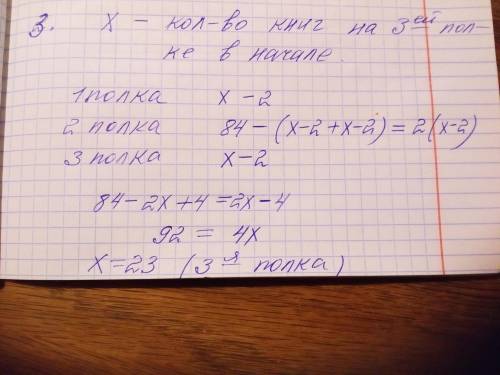 3. X - кол-во книг на 3ей пол-
ке в начале.
1 полка x - 2
2 полка 84 - (x-2+x-2) = 2(x-2)
3 полка x-2
84 - 2x + 4 = 2x - 4
92 = 4x
X = 23 (3я полка)